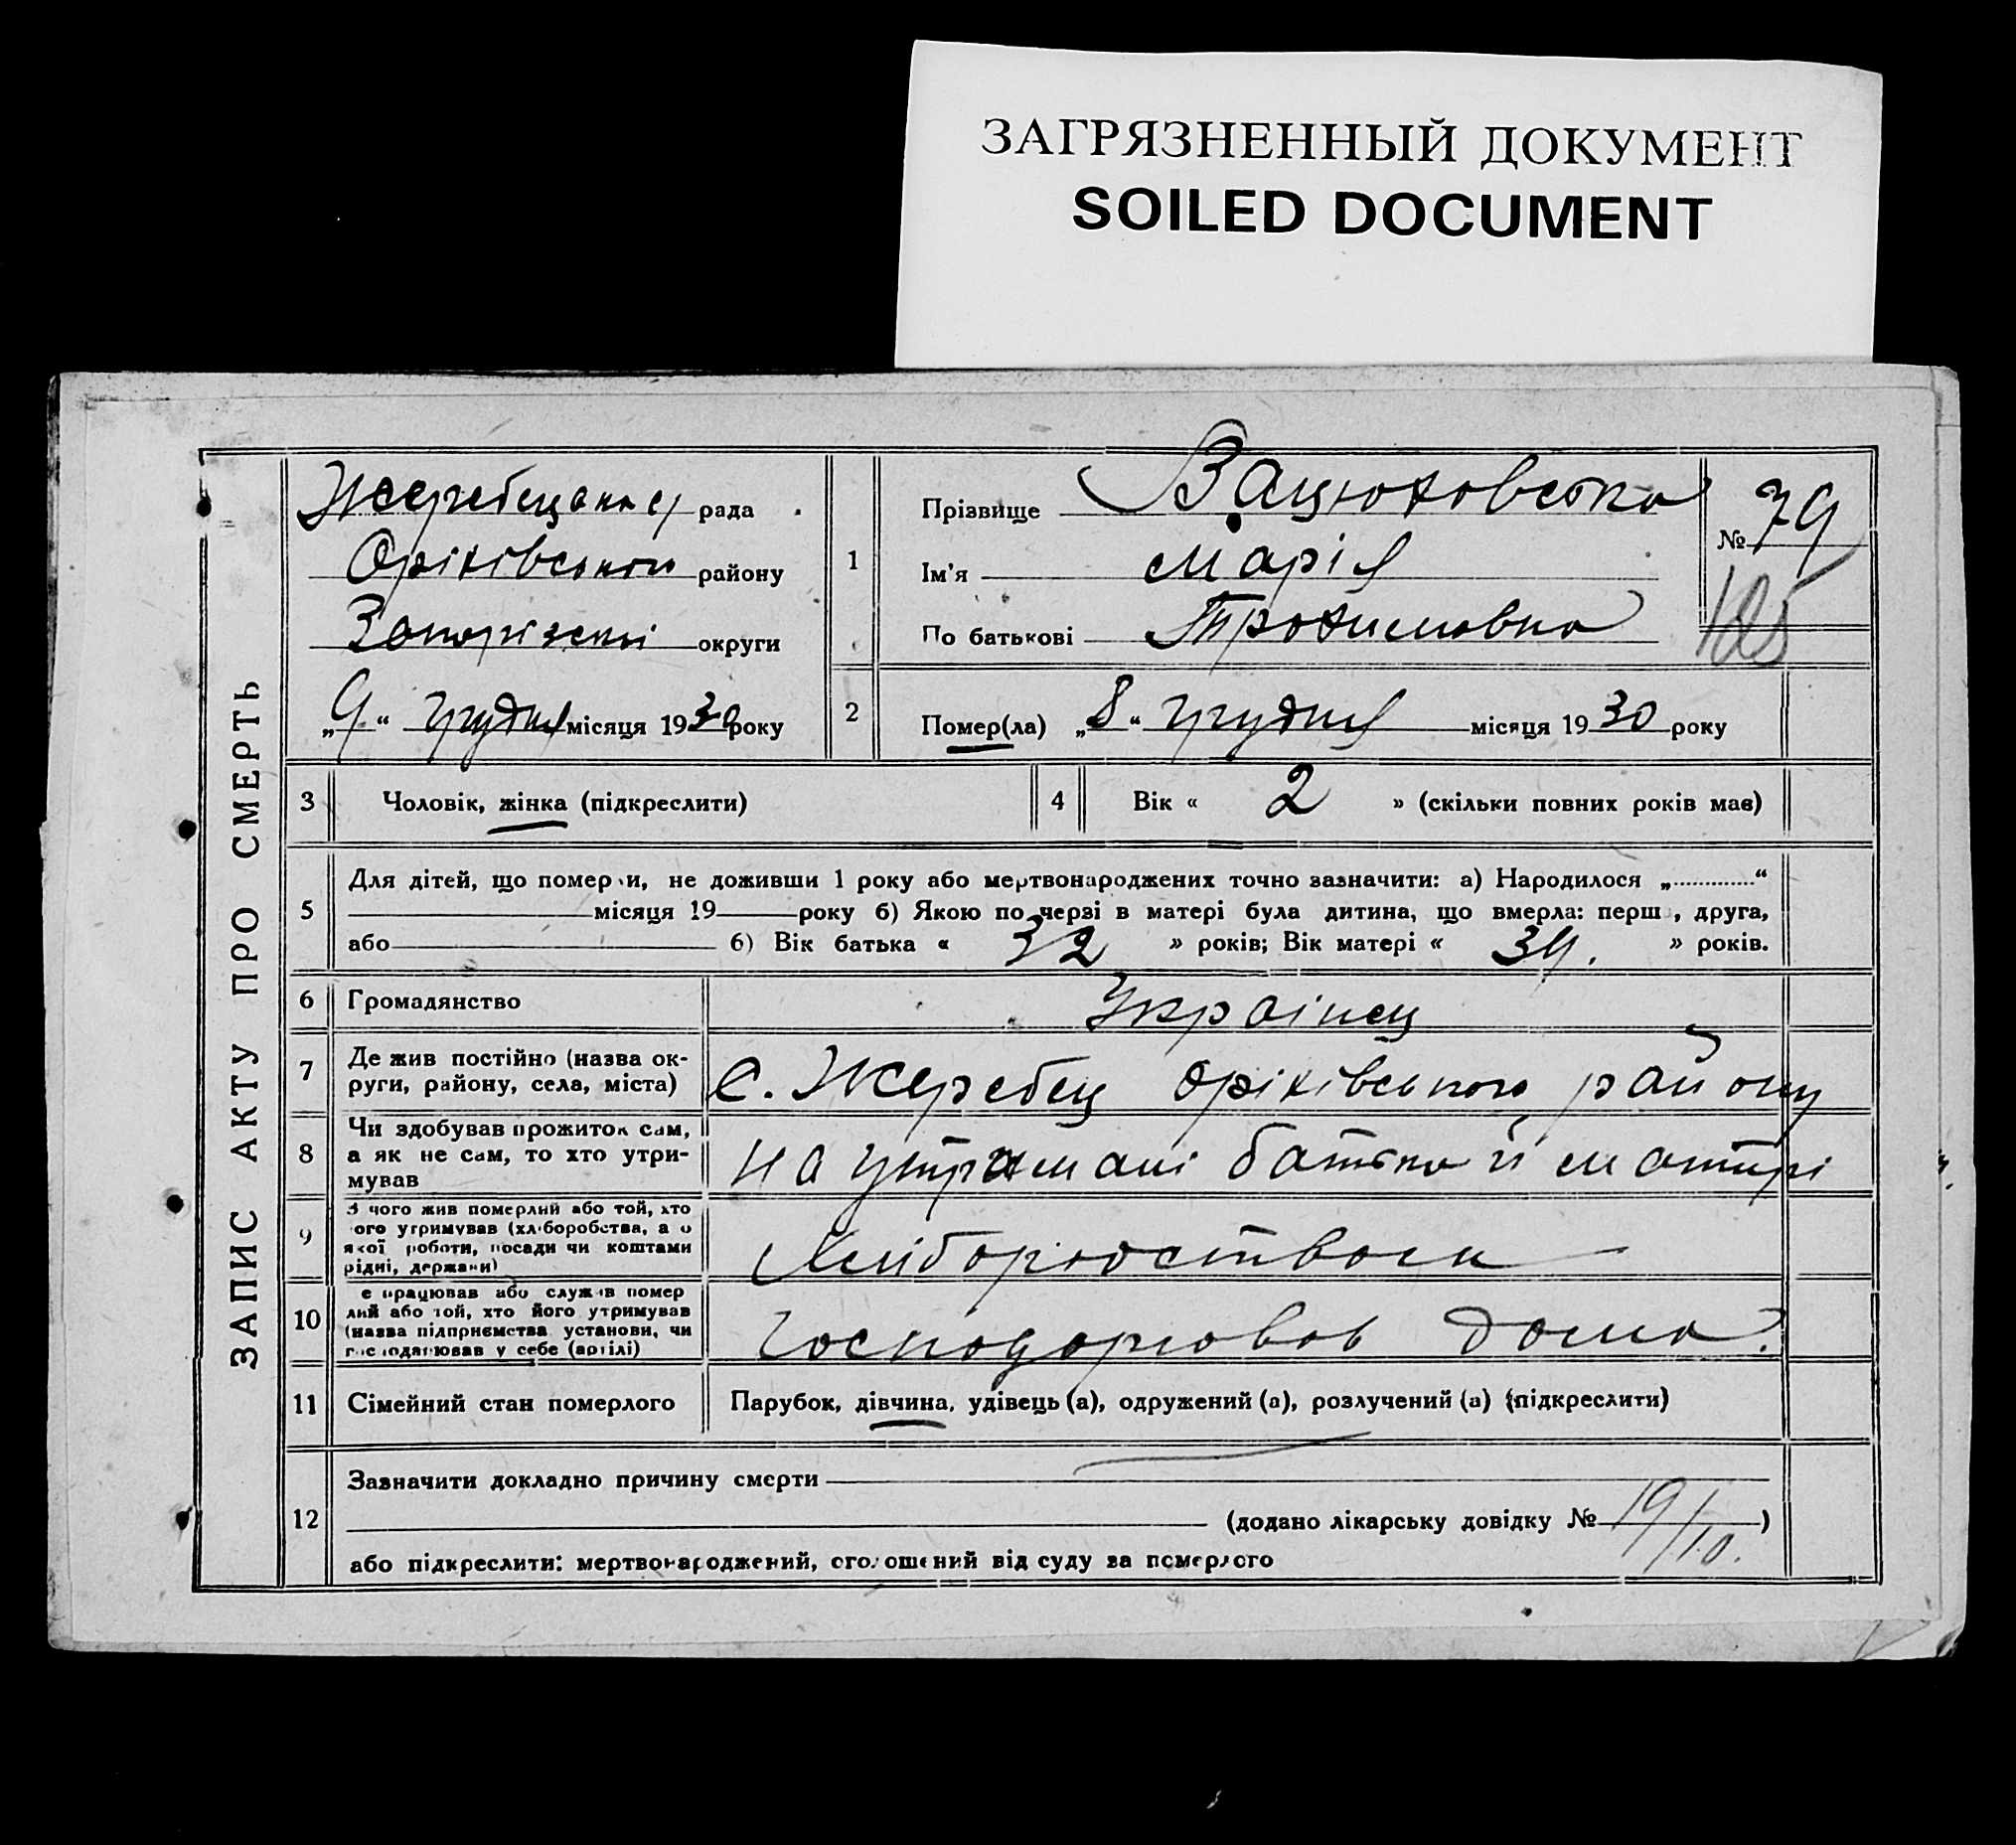 ЗАГРЯЗНЕННЫЙ ДОКУМЕНТ
SOILED DOCUMENT
ЗАПИС АКТУ ПРО СМЕРТЬ
Жеребецька рада
Оріхівського району
Запорізької округи
„9“ грудня місяця 1930 року
1
Прізвище Вацюховська
Ім'я Марія
По батькові Трохимовна
№ 79
2
Помер(ла) „8“ грудня місяця 1930 року
3 Чоловік, жінка (підкреслити)
4 Вік « 2 » (скільки повних років має)
5 Для дітей, що померли, не доживши 1 року або мертвонароджених точно зазначити: а) Народилося „.............“
місяця 19 року б) Якою по черзі в матері була дитина, що вмерла: перша, друга,
або б) Вік батька « 32 » років; Вік матері « 34. » років.
6 Громадянство Українец
7 Де жив постійно (назва округи, району, села, міста) с. Жеребец Оріхівського району
8 Чи здобував прожиток сам,
а як не сам, то хто утри-
мував на утримані батька й матирі
9 З чого жив померлий або той, хто
його утримував (хліборобства, а о
якої роботи, посади чи коштами
рідні, держави) Хліборобством
10 е працював або служив помер
лий або той, хто його утримував
(назва підприємства установи, чи
господарював у себе (артілі) господорював дома
11 Сімейний стан померлого Парубок, дівчина, удівець (а), одружений (а), розлучений (а) (підкреслити)
12 Зазначити докладно причину смерти
(додано лікарську довідку № 19/10.)
або підкреслити: мертвонароджений, оголошений від суду за померлого